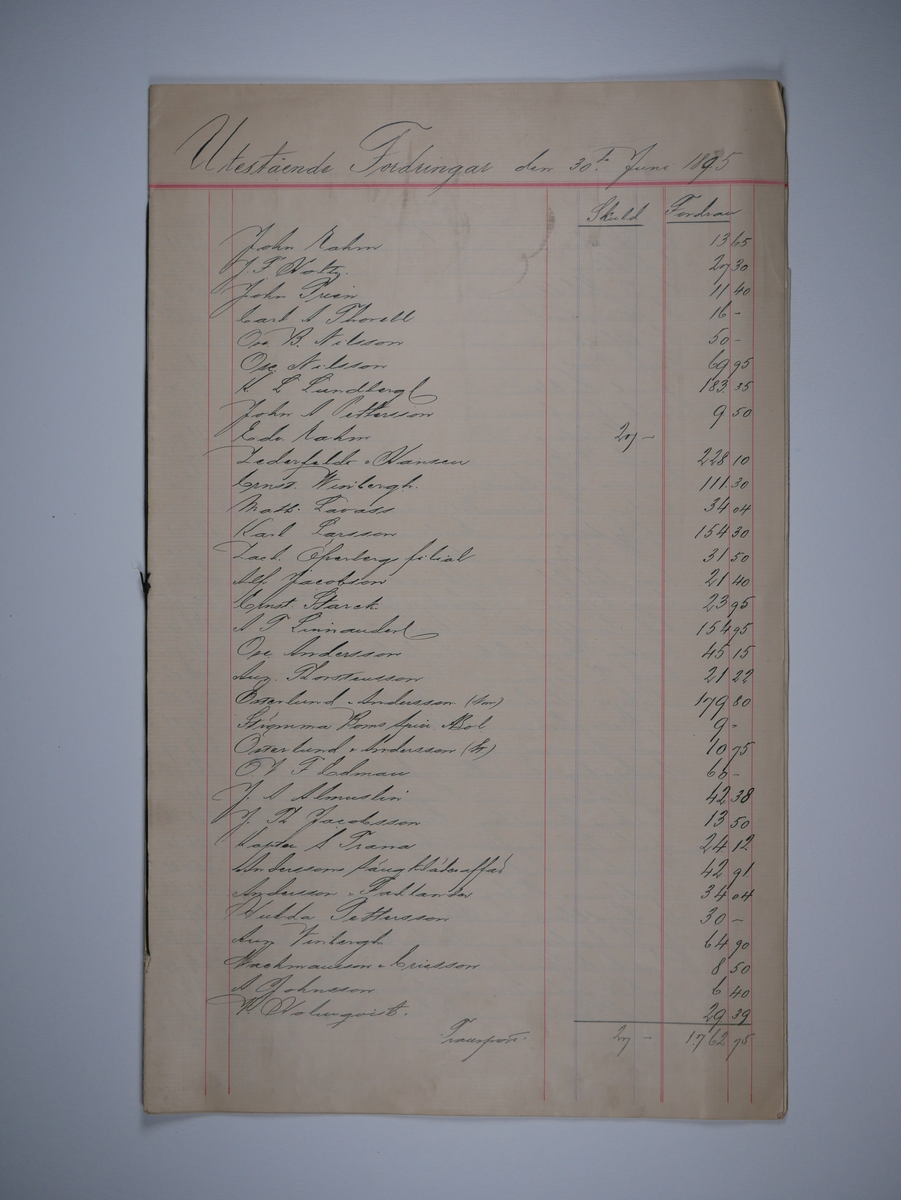 Utestående Fordringar den 30te Juni 1895
Skuld Fordran
John Rahm 13 65
J. F. Holtz. 27 30
John Prien 11 40
Carl A Thorell 16 -
Osc B. Nilsson 50 -
Osc Nilsson 69 95
K L Lundbergh 183 35
John A Pettersson 9 50
Edv. Rahm 27 -
Lederfeldt & Hansen 228 10
Ernst Winbergh. 111 30
Math. 34 04
Karl Larsson 154 30
Zach. Öfverberg filial 31 50
Alf. Jacobson 21 40
Ernst. Starck 23 95
A F Linnander 154 95
Osc Andersson 45 15
Aug. Thorstensson 21 22
Österlund & Andersson 179 80
9 -
Österlund & Andersson 10 75
F Edman 60 -
J. A 42 38
J. Th Jacobsson 13 50
A Trana 24 12
Anderssons Sängklädesaffär 42 91
Andersson & 34 04
Hulda Pettersson 30 -
Aug Vinbergh 64 90
Wachmansson & Ericsson 8 50
A Johnsson 6 40
Holmqvist. 29 39
Transport. 27 - 1762 75